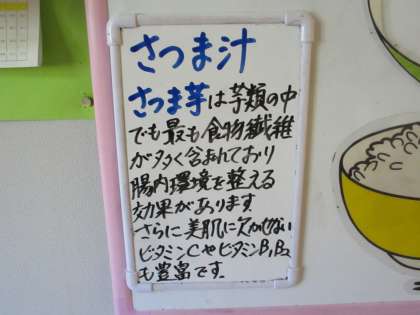 さつま汁
さつま芋は芋類の中
でも最も食物繊維
が多く含まれており
腸内環境を整える
効果があります
さらに美肌に欠かせない
ビタミンCやビタミンB₁B₂
も豊富です。